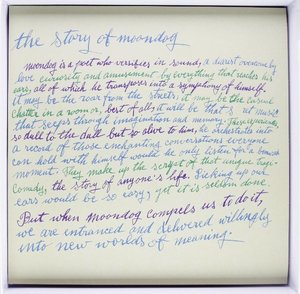 the story of moondog
moondog is a poet who versifies in sound, a diarist overcome by
love curiosity and amusement by everything that reaches his
ears, all of which he transposes into a symphony of himself.
it may be the roar from the streets, it may be the casual
chatter in a room or, best of all, it will be that music
that seeps through imagination and memory. These ephemerids,
so dull to the dull but so alive to him, he orchestrates into
a record of those enchanting conversations everyone
can hold with himself would he only listen for a
moment. They make up the script of that unique tragi-
comedy, the story of anyone's life. Picking up our
ears would be so easy, yet it is seldom done.
But when Moondog compels us to do it,
we are entranced and delivered willingly
into new worlds of meaning.